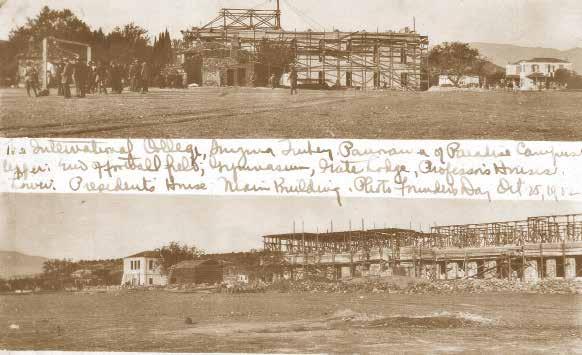 International College, Smyrna Turkey, Panorama of Paradise Campus
Upper: End of football field, Gymnasium, Gate Lodge, Professors Houses.
Lower: Presidents House Main Building Photo Founders Day Oct 25,